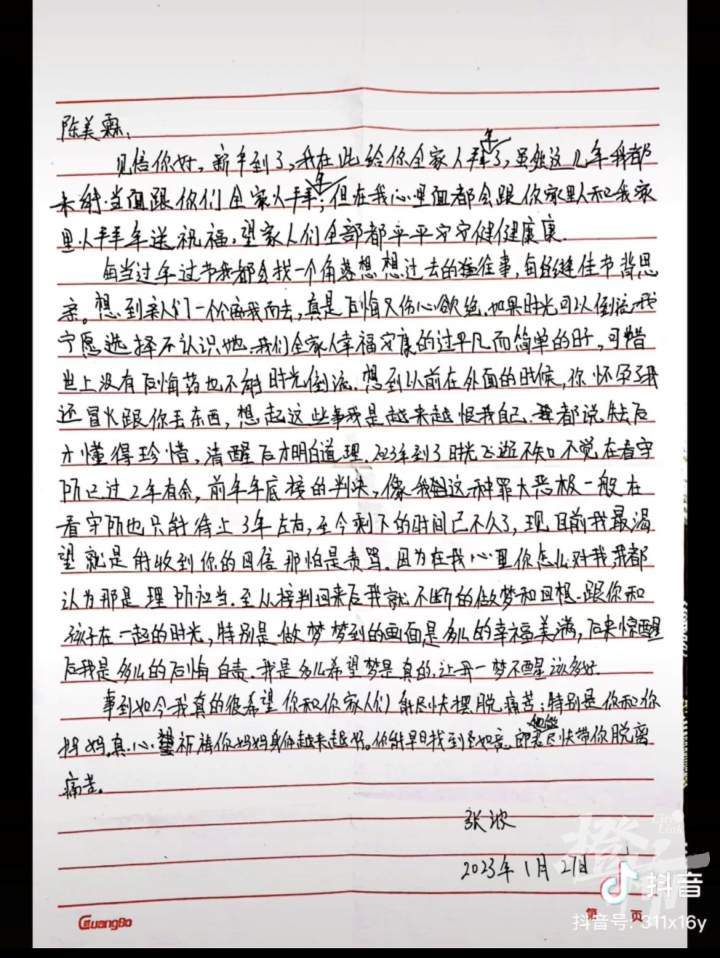 陈美霖：
见信你好。新年到了，我在此给你全家人拜年了，虽然这几年我都
未能当面跟你们全家人拜年，但在我心里面都会跟你家里人和我家
里人拜年送祝福，望家人们全部都平平安安健健康康
每当过年过节我都会找一个角落想想过去的往事，每逢佳节背思
亲。想到亲人们一个个离我而去，真是后悔又伤心欲绝。如果时光可以倒流我
宁愿选择不认识她。我们全家人幸福安康的过平凡而简单的日，可惜
世上没有后悔药也不能时光倒流。想到以前在外面的时候，你怀孕了我
还冒火跟你丢东西，想起这些事我是越来越恨我自己。都说失去后
才懂得珍惜，清醒后才明白道理。2023年到了时光飞逝不知不觉在看守
所已过2年有余，前年年底接的判决，像我这种罪大恶极一般在
看守所也只能待上3年左右，至今剩下的时间已不久了，现目前我最渴
望就是能收到你的回信那怕是责骂。因为在我心里你怎么对我我都
认为那是理所应当。至从接判回来后我就不断的做梦和回想。跟你和
孩子在一起的时光，特别是做梦梦到的画面是多么的幸福美满，后来惊醒
后我是多么的后悔自责。我是多么希望梦是真的，让我一梦不醒该多好
事到如今我真的很希望你和你家人们能尽快摆脱痛苦；特别是你和你
妈妈。真心祈祷你妈妈身体越来越好。你能早日找到如意郎君他能尽快带你脱离
痛苦。
张波
2023年1月27日
第 页
GuangBo
抖音
抖音号: 311x16y